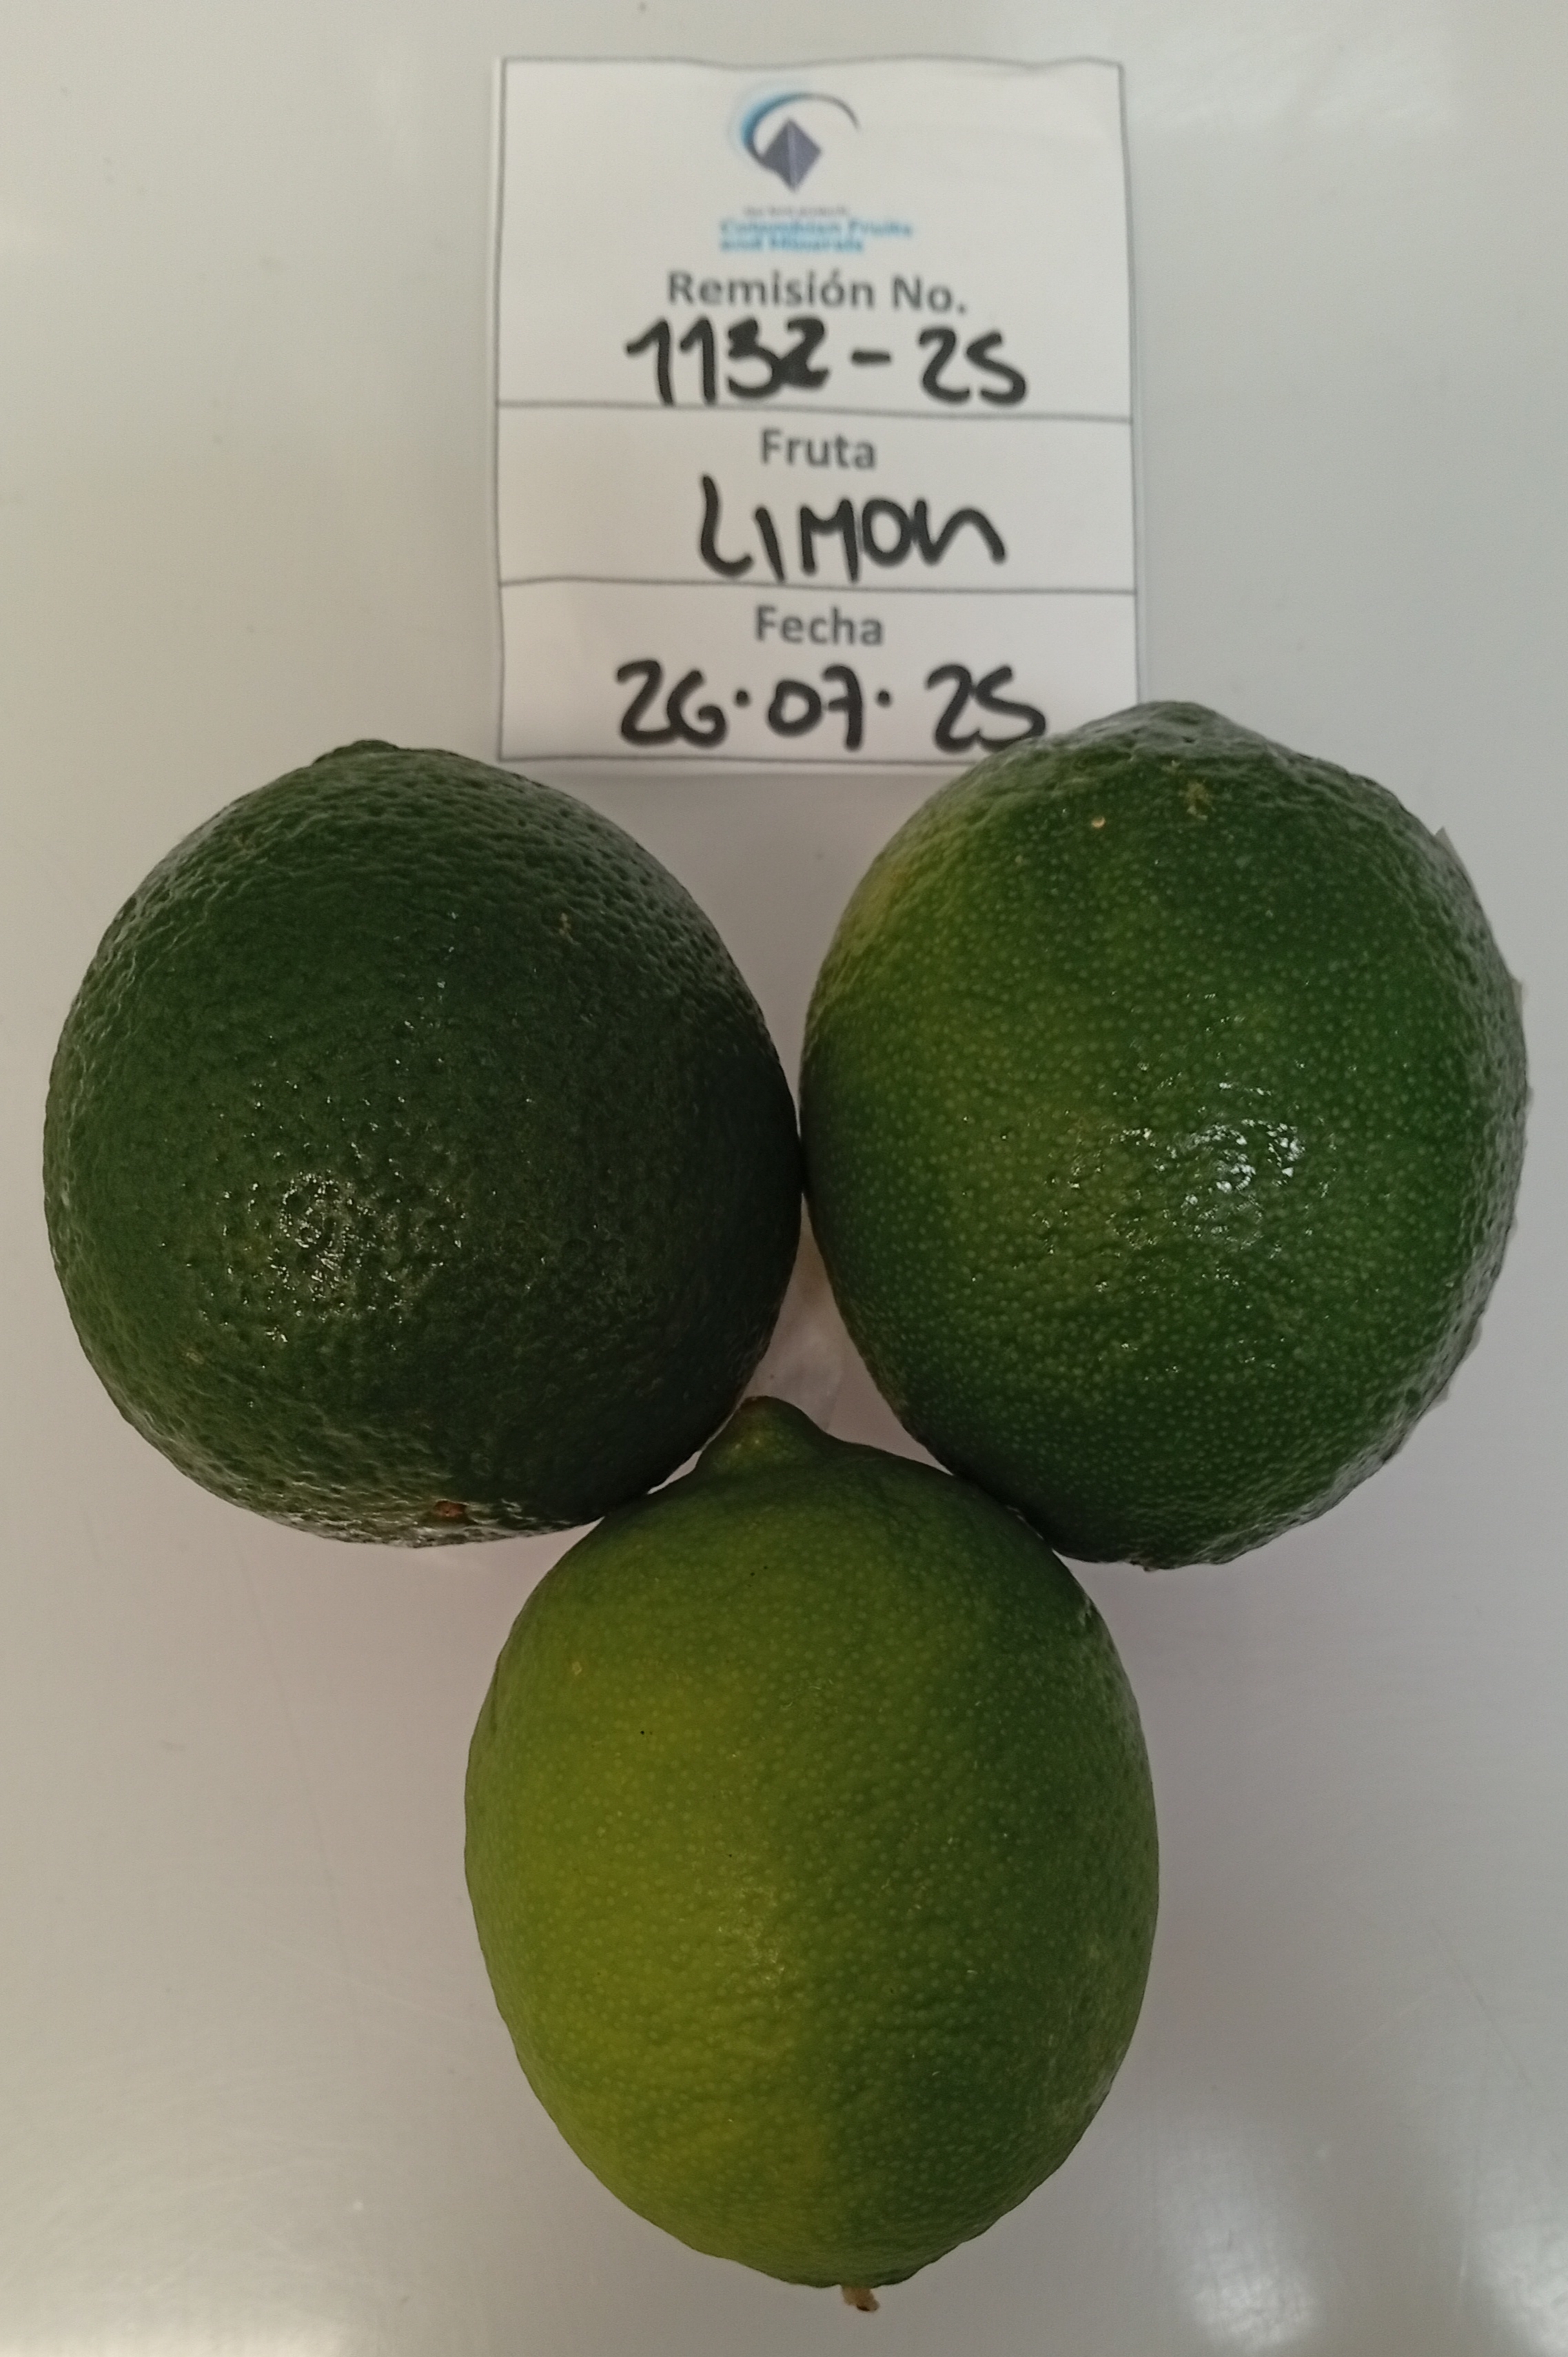 Colombian Fruits
and Minerals
Remisión No.
1132-25
Fruta
LIMON
Fecha
26.07.25